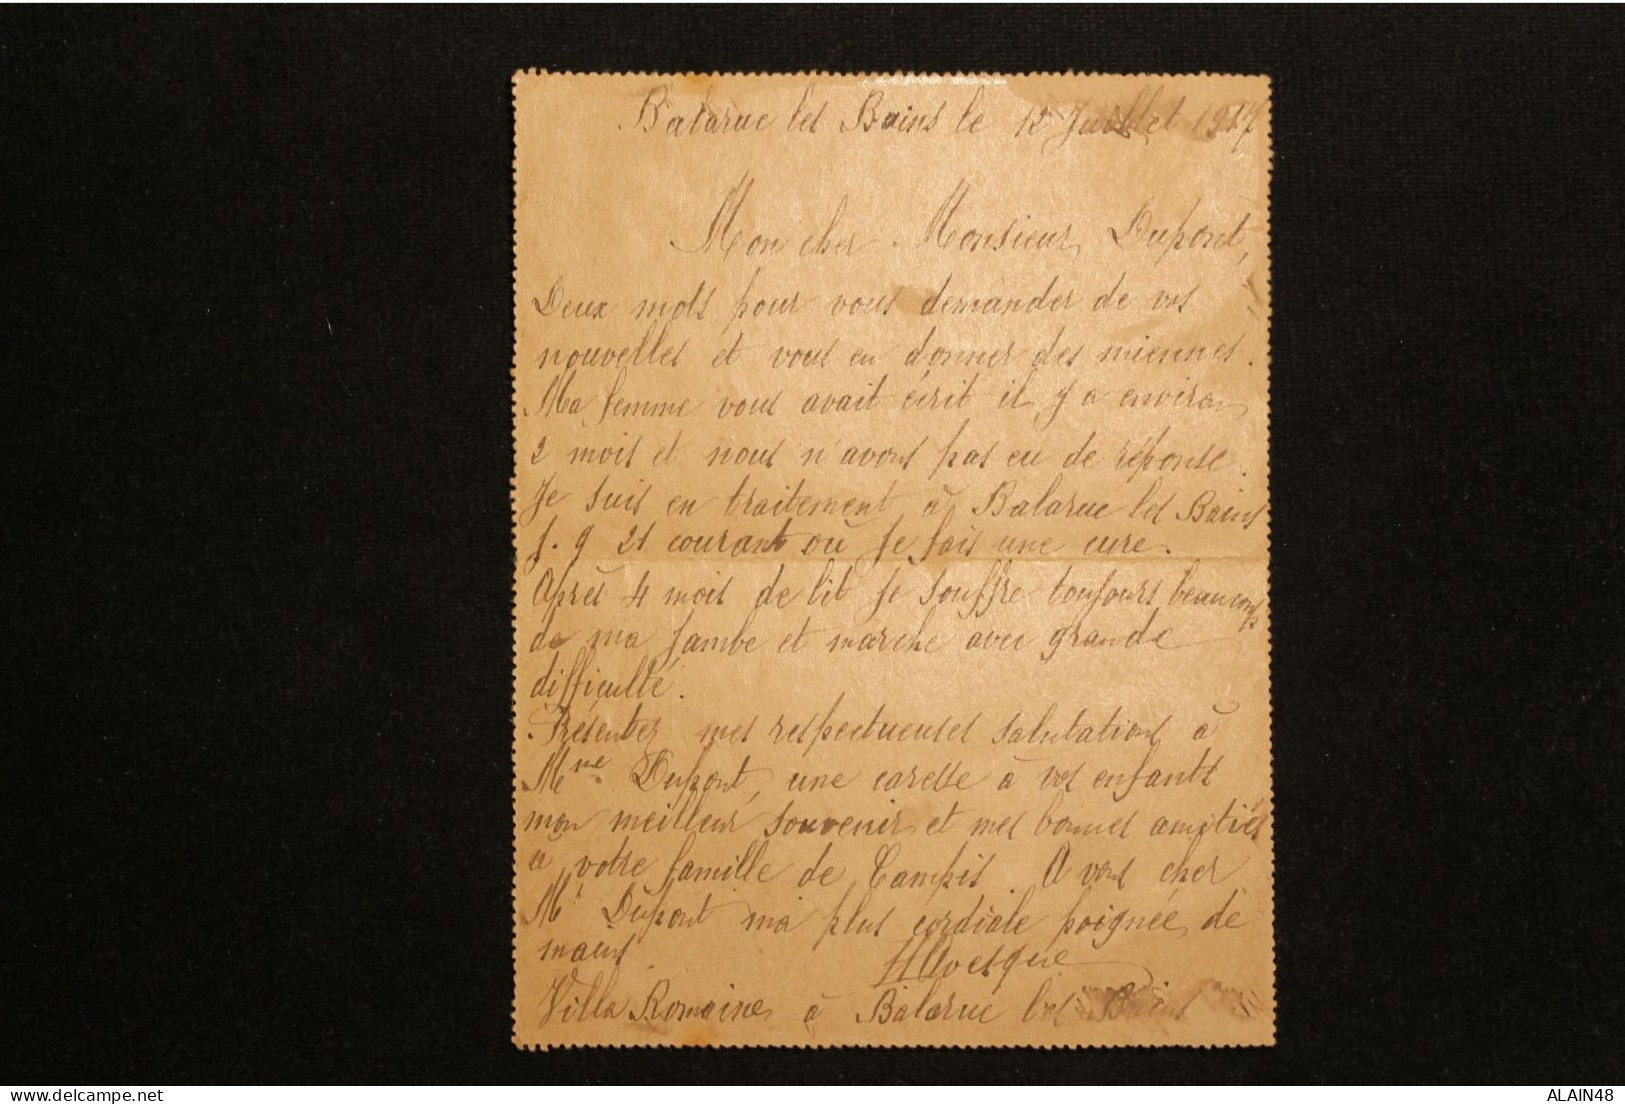 Balaruc les Bains le 12 Juillet 1917
Mon cher Monsieur Dupont,
Deux mots pour vous demander de vos
nouvelles et vous en donner des miennes.
Ma femme vous avait écrit il y a environ
2 mois et nous n'avons pas eu de réponse.
Je suis en traitement à Balaruc les Bains
j. q 21 courant où je fais une cure.
Après 4 mois de lit je souffre toujours beaucoup
de ma jambe et marche avec grande
difficulté.
Présentez mes respectueuses salutations à
Mme Dupont, une caresse à vos enfants
mon meilleur souvenir et mes bonnes amitiés
à votre famille de Campis. A vous cher
Mr Dupont ma plus cordiale poignée de
mains
Villa Romaine à Balaruc les Bains
ALAIN48